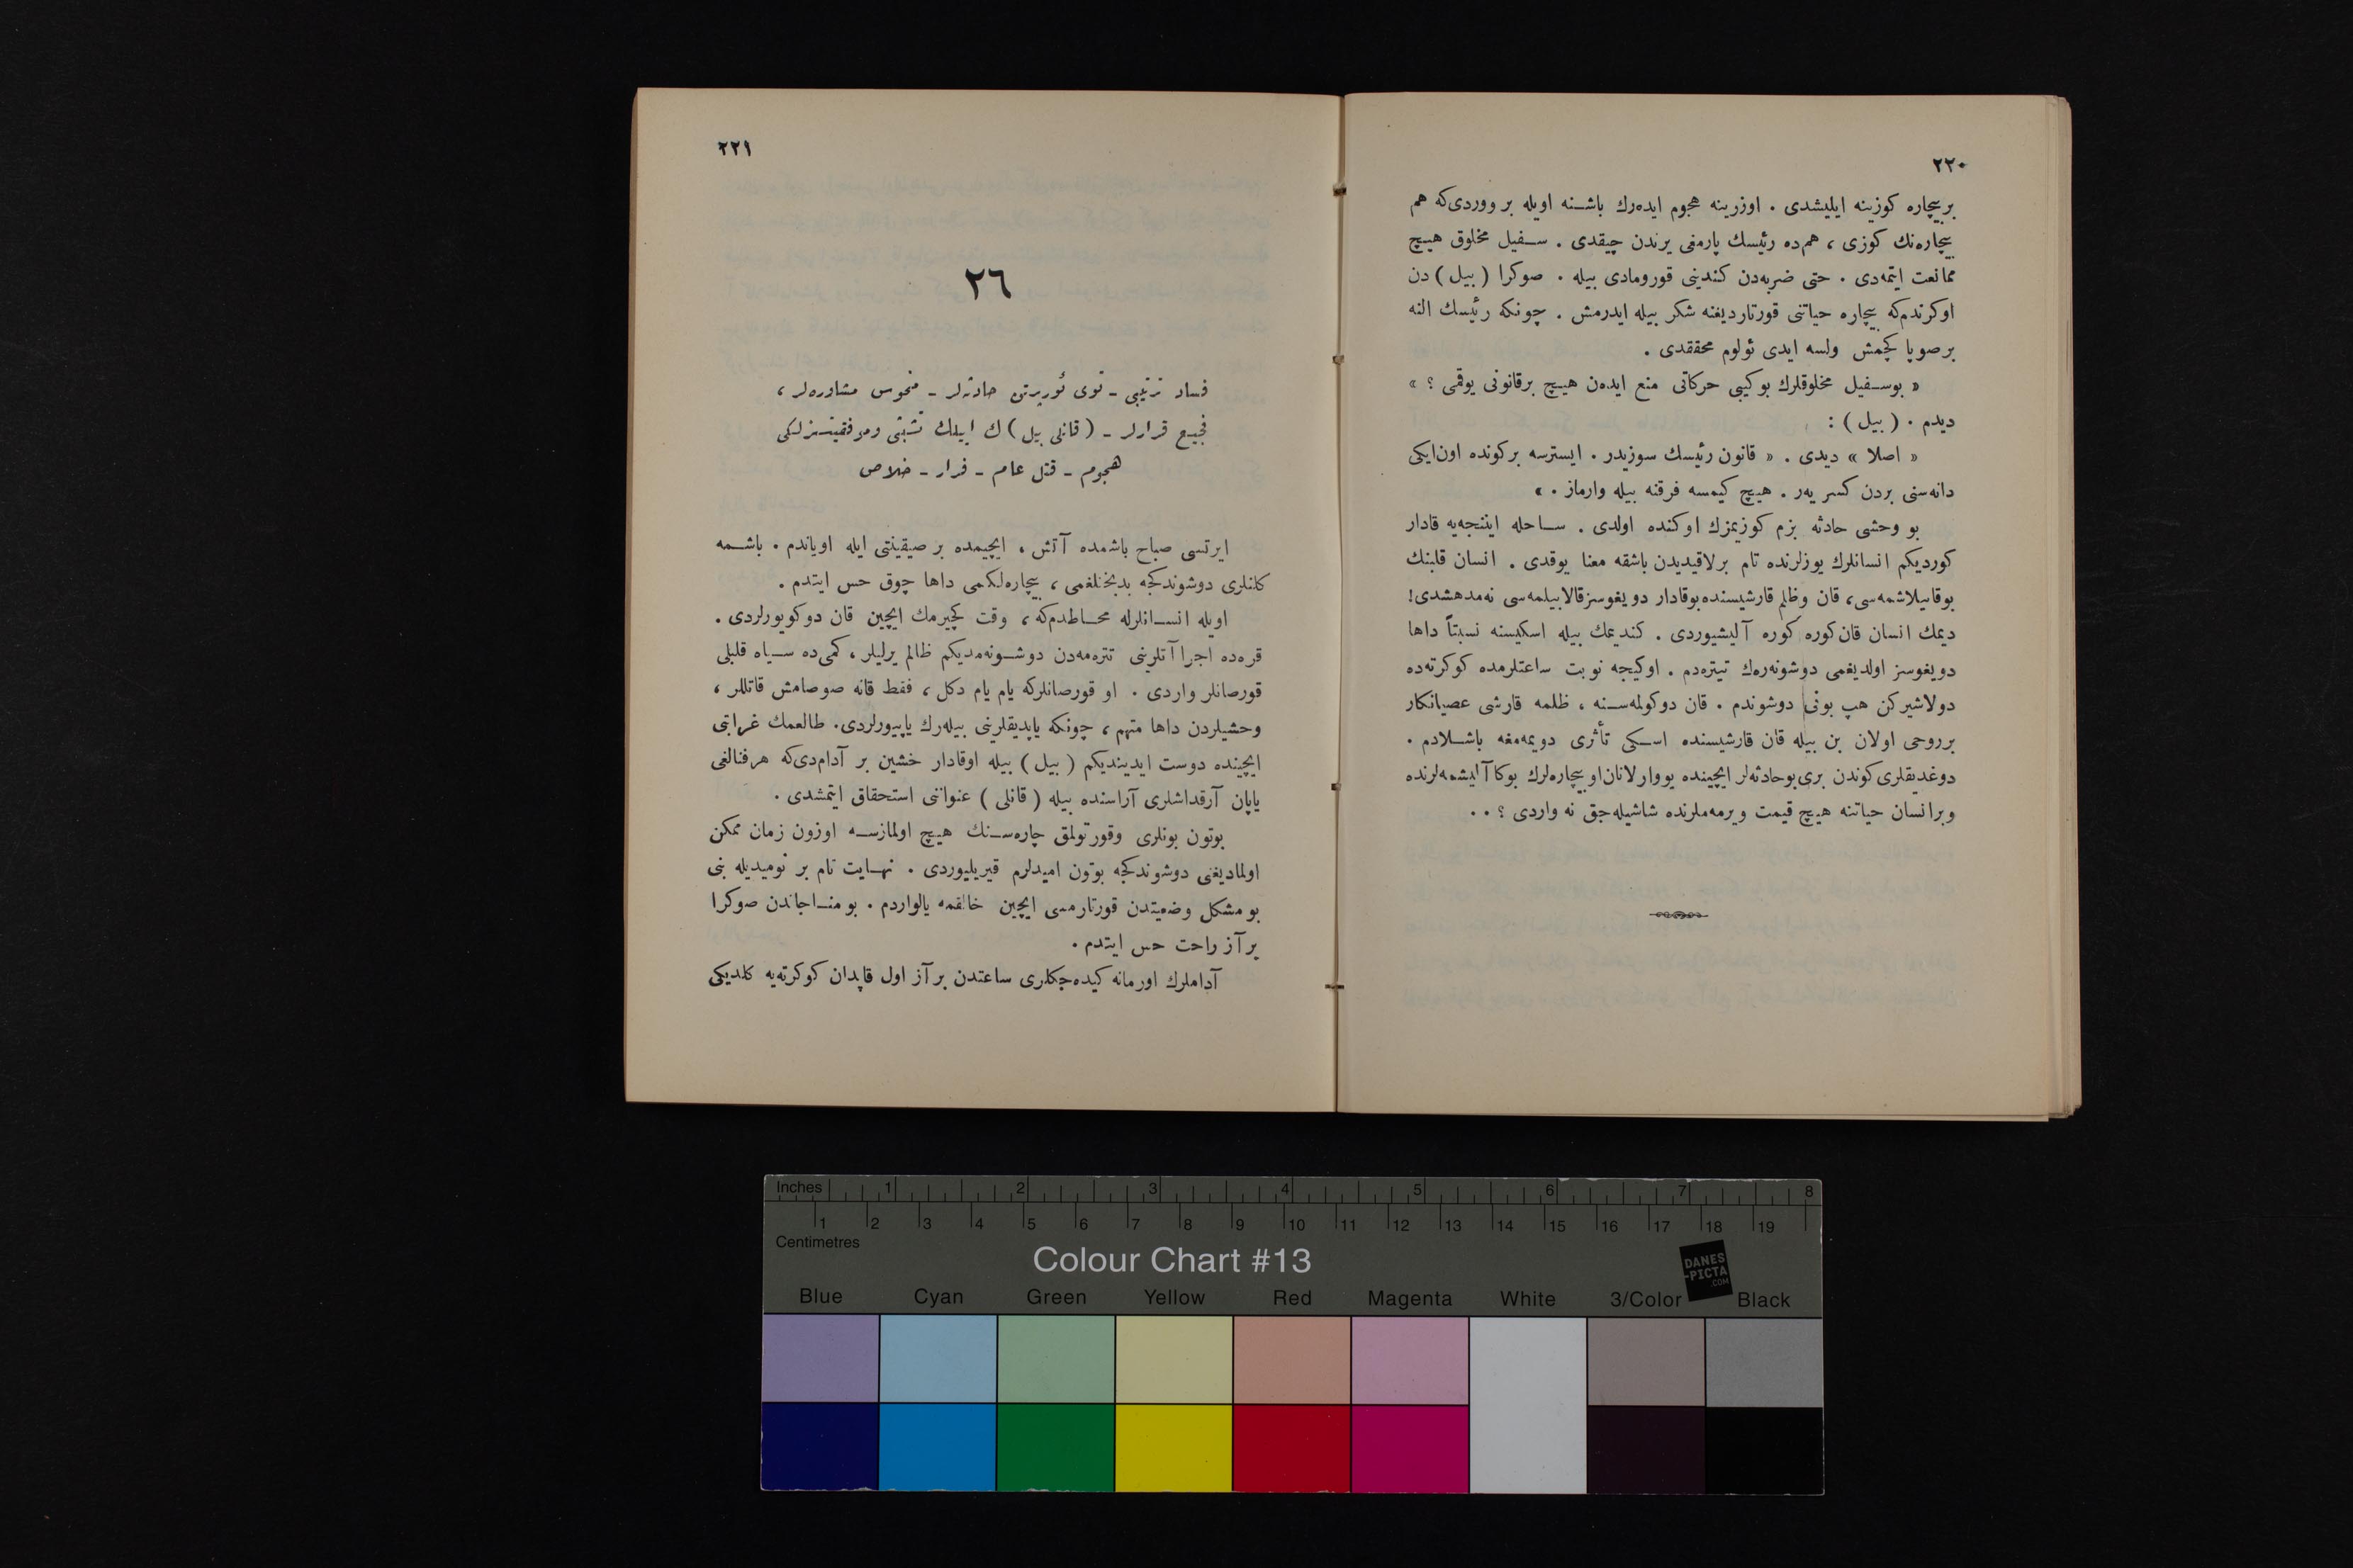 ٢٢٠
بر بیچاره كوزینه ایلیشدی . اوزرینه هجوم ایده‌رك باشـنه اویله بر ووردی‌كه هم
بیچاره‌نك كوزی ، هم‌ده رئیسك پارمغی یرندن چیقدی . سـفیل مخلوق هیـچ
ممانعت ایتمه‌دی . حتی ضربه‌دن كندینی قورومادی بیله . صوكرا ( بیل ) دن
اوكرندم‌كه بیچاره حیاتنی قورتاردیغنه شكر بیله ایدرمش . چونكه رئیسك النه
بر صوپا كچمش ولسه ایدی ئولوم محققدی .
« بوسـفیل مخلوقلرك بوكیبی حركاتی منع ایده‌ن هیـچ برقانونی یوقمی ؟ »
دیدم . ( بیل ) :
« اصلا » دیدی . « قانون رئیسك سوزیدر . ایسترسه بركونده اون‌ایكی
دانه‌سنی بردن كسر یه‌ر . هیـچ كیمسه فرقنه بیله وارماز . »
بو وحشی حادثه بزم كوزیمزك اوكنده اولدی . سـاحله ایننجه‌یه قادار
كوردیكم انسانلرك یوزلرنده تام برلاقیدیدن باشقه معنا یوقدی . انسان قلبنك
بوقاسیلاشمه‌سی، قان وظلم قارشیسنده بوقادار دویغوسزقالابیلمه‌سی نه‌مدهشدی!
دیمك انسان قان‌كوره كوره آلیشیوردی . كندیمك بیله اسكیسنه نسبتاً داها
دویغوسز اولدیغمی دوشونه‌رك تیتره‌دم . اوكیجه نوبت ساعتلرمده كوكرته‌ده
دولاشیركن هپ بونی دوشوندم . قان دوكولمه‌سـنه ، ظلمه قارشی عصیانكار
برروحی اولان بن بیله قان قارشیسنده اسـكی تأثری دویمه‌مغه باشـلادم .
دوغدیقلری كوندن بری بوحادثه‌لر ایچینده یووارلانان‌او بیچاره‌لرك بوكا آلیشمه‌لرنده
وبرانسان حیاتنه هیـچ قیمت ویرمه‌ملرنده شاشیله‌جق نه واردی ؟ . .
٢٢١
٢٦
فساد ترتیبی - توی ئورپرتن حادثه‌لر - منحوس مشاوره‌لر ،
فجیع قرارلر - ( قانلی بیل ) ك اییلك تشبثی وموفقیتسزلكی
هجوم - قتل عام - فرار - خلاص
ایرتسی صباح باشمده آتش ، ایچیمده بر صیقینتی ایله اویاندم . باشـمه
كلنلری دوشوندكجه بدبختلغمی ، بیچاره‌لكمی داها چوق حس ایتدم .
اویله انسـانلرله محـاطدم‌كه ، وقت كچیرمك ایچین قان دوكویورلردی .
قره‌ده اجراآتلرینی تتره‌مه‌دن دوشـونه‌مدیكم ظالم یرلیلر ، كمی‌ده سـیاه قلبلی
قورصانلر واردی . او قورصانلركه یام یام دكل ، فقط قانه صوصامش قاتللر ،
وحشیلردن داها متهم ، چونكه یاپدیقلرینی بیله‌رك یاپیورلردی. طالعمك غرابتی
ایچینده دوست ایدیندیكم ( بیل ) بیله اوقادار خشین بر آدام‌دی‌كه هرفنالغی
یاپان آرقداشلری آراسنده بیله ( قانلی ) عنوانی استحقاق ایتمشدی .
بوتون بونلری وقورتولمق چاره‌سـنك هیـچ اولمازسـه اوزون زمان ممكن
اولمادیغنی دوشوندكجه بوتون امیدلرم قیریلیوردی . نهـایت تام بر نومیدیله بنی
بو مشكل وضعیتدن قورتارمسی ایچین خالقمه یالواردم . بو منـاجاندن صوكرا
بر آز راحت حس ایتدم .
آداملرك اورمانه كیده‌جكلری ساعتدن بر آز اول قاپدان كوكرته‌یه كلدیكی
Inches 1 2 3 4 5 6 7 8
1 2 3 4 5 6 7 8 9 10 11 12 13 14 15 16 17 18 19
Centimetres
Colour Chart #13
DANES
-PICTA
.COM
Blue Cyan Green Yellow Red Magenta White 3/Color Black